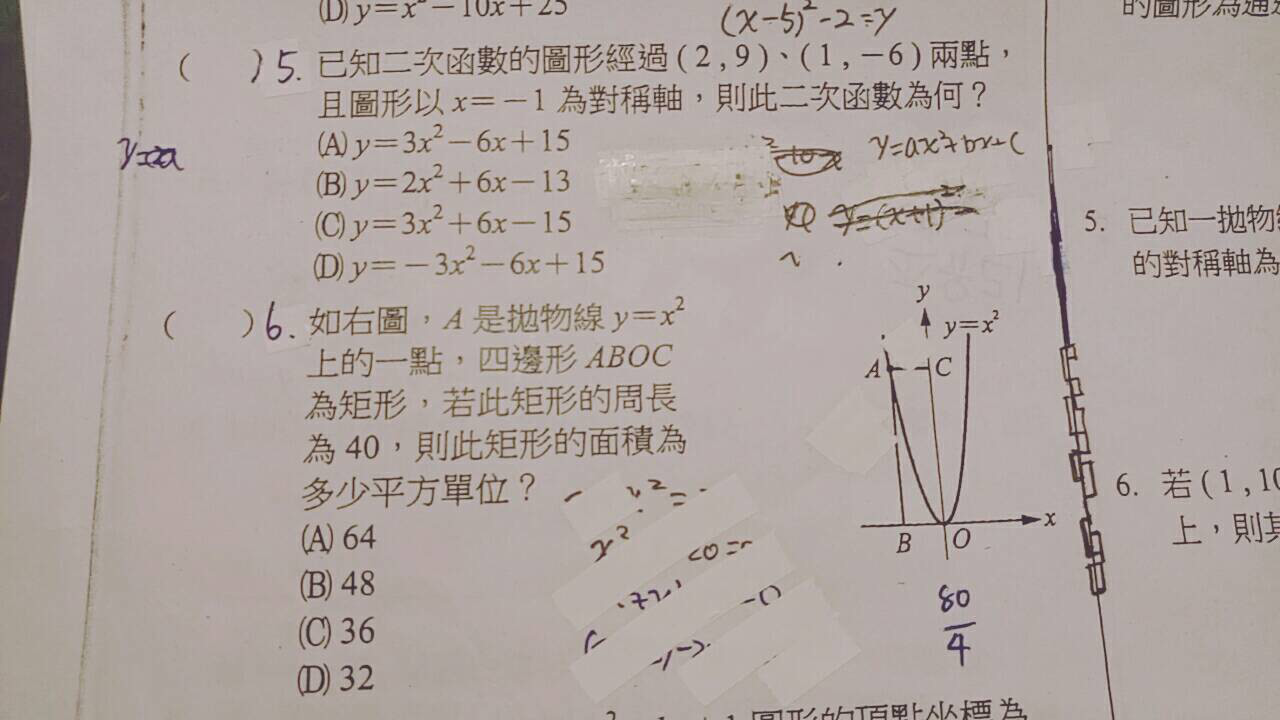 (D) y=x²-10x+25
(x-5)²-2=y
的圖形為通過
( ) 5. 已知二次函數的圖形經過(2,9)、(1,-6)兩點，
且圖形以 x=-1 為對稱軸，則此二次函數為何？
(A) y=3x²-6x+15
(B) y=2x²+6x-13
(C) y=3x²+6x-15
(D) y=-3x²-6x+15
y=ax²+bx+c
y=(x+1)²
( ) 6. 如右圖，A 是拋物線 y=x²
上的一點，四邊形 ABOC
為矩形，若此矩形的周長
為 40，則此矩形的面積為
多少平方單位？
(A) 64
(B) 48
(C) 36
(D) 32
y
y=x²
A
C
x
B
O
80
4
5. 已知一拋物
的對稱軸為
6. 若(1,10
上，則其
圖形的頂點坐標為